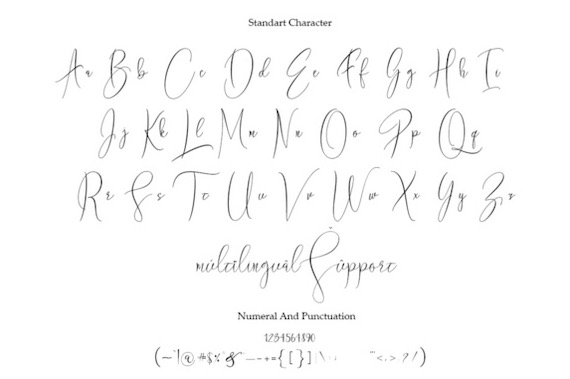 Standart Character
Aa Bb Cc Dd Ee Ff Gg Hh Ii
Jj Kk Ll Mm Nn Oo Pp Qq
Rr Ss Tt Uu Vv Ww Xx Yy Zz
múltilingùál Šúpport
Numeral And Punctuation
1234564890
(~'!@#$%^&*—-+={[}]|\:; "'<,.> ?/)